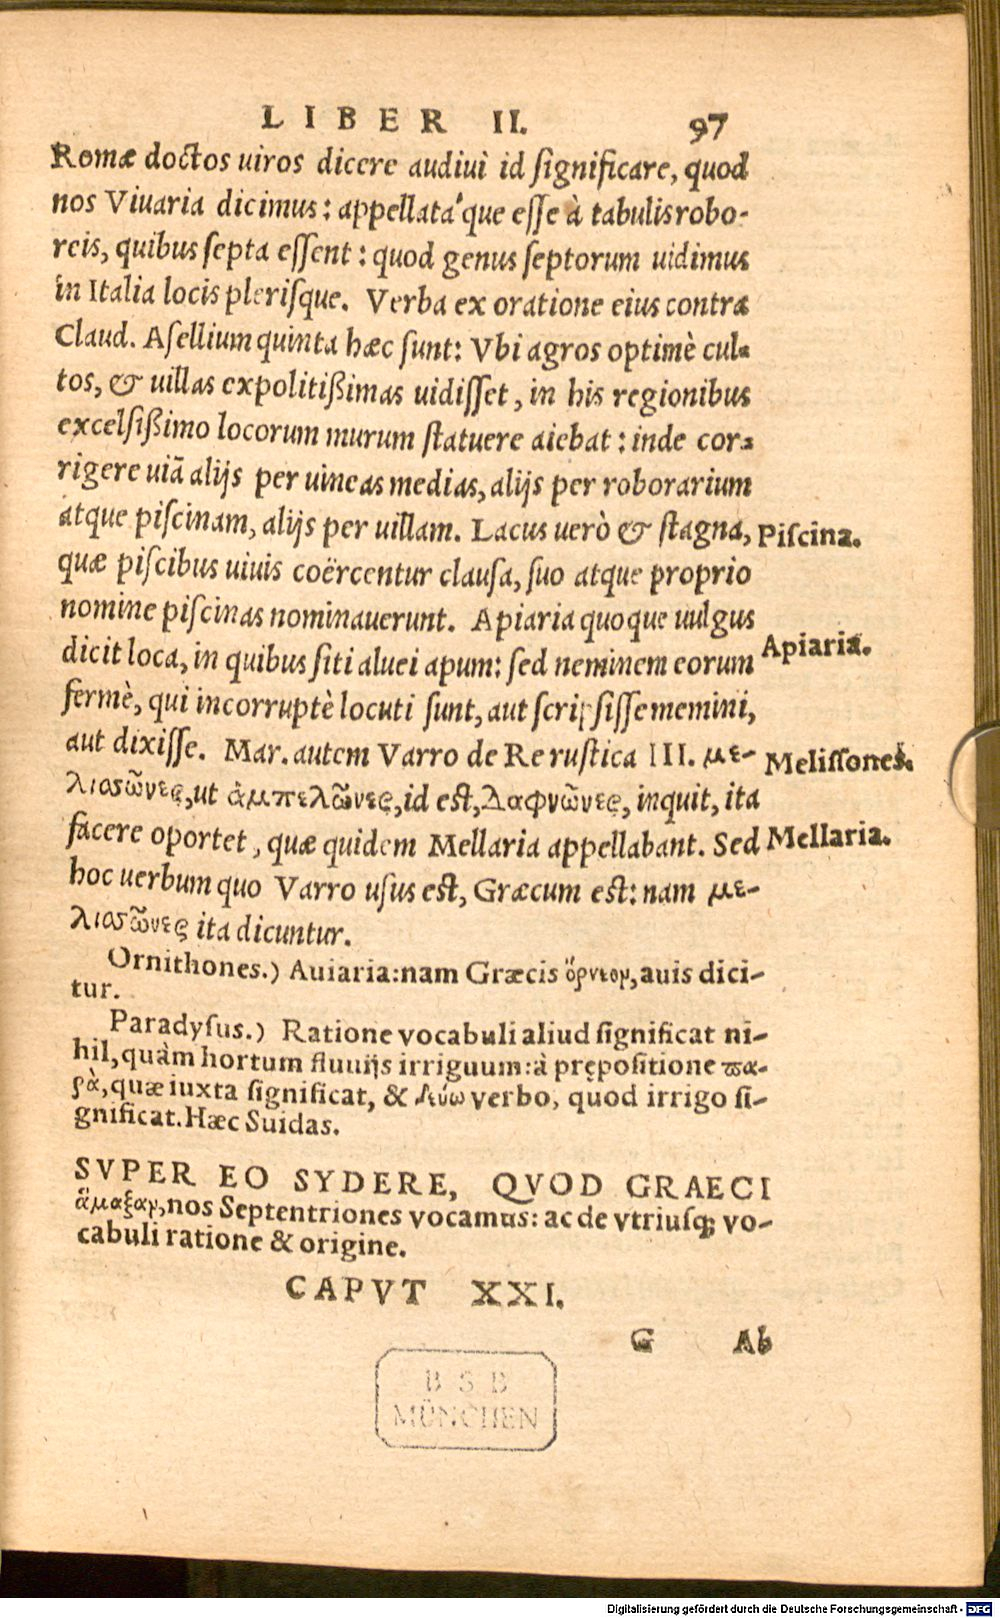 LIBER II. 97
Romæ doctos uiros dicere audiui id ſignificare, quod
nos Viuaria dicimus: appellata'que eſſe à tabulis robo-
reis, quibus ſepta eſſent: quod genus ſeptorum uidimus
in Italia locis pleriſque. Verba ex oratione eius contra
Claud. Aſellium quinta hæc ſunt: Vbi agros optimè cul-
tos, & uillas expolitißimas uidiſſet, in his regionibus
excelſißimo locorum murum ſtatuere aiebat: inde cor-
rigere uiã alijs per uineas medias, alijs per roborarium
atque piſcinam, alijs per uillam. Lacus uerò & ſtagna,
Piſcina.
quæ piſcibus uiuis coërcentur clauſa, ſuo atque proprio
nomine piſcinas nominauerunt. Apiaria quoque uulgus
Apiaria.
dicit loca, in quibus ſiti aluei apum: ſed neminem eorum
fermè, qui incorruptè locuti ſunt, aut ſcripſiſſe memini,
aut dixiſſe. Mar. autem Varro de Re ruſtica III. με-
Meliſſones.
λιασῶνες, ut ἀμπελῶνες, id eſt, Δαφνῶνες, inquit, ita
facere oportet, quæ quidem Mellaria appellabant. Sed
Mellaria.
hoc uerbum quo Varro uſus eſt, Græcum eſt: nam με-
λιασῶνες ita dicuntur.
Ornithones.) Auiaria: nam Græcis ὄρνεον, auis dici-
tur.
Paradyſus.) Ratione vocabuli aliud ſignificat ni-
hil, quàm hortum fluuijs irriguum: à prępoſitione ϖα-
ρὰ, quæ iuxta ſignificat, & δεύω verbo, quod irrigo ſi-
gnificat. Hæc Suidas.
SVPER EO SYDERE, QVOD GRAECI
ἅμαξαν, nos Septentriones vocamus: ac de vtriuſq; vo-
cabuli ratione & origine.
CAPVT XXI.
G Ab
BSB
MÜNCHEN
Digitalisierung gefördert durch die Deutsche Forschungsgemeinschaft - DFG